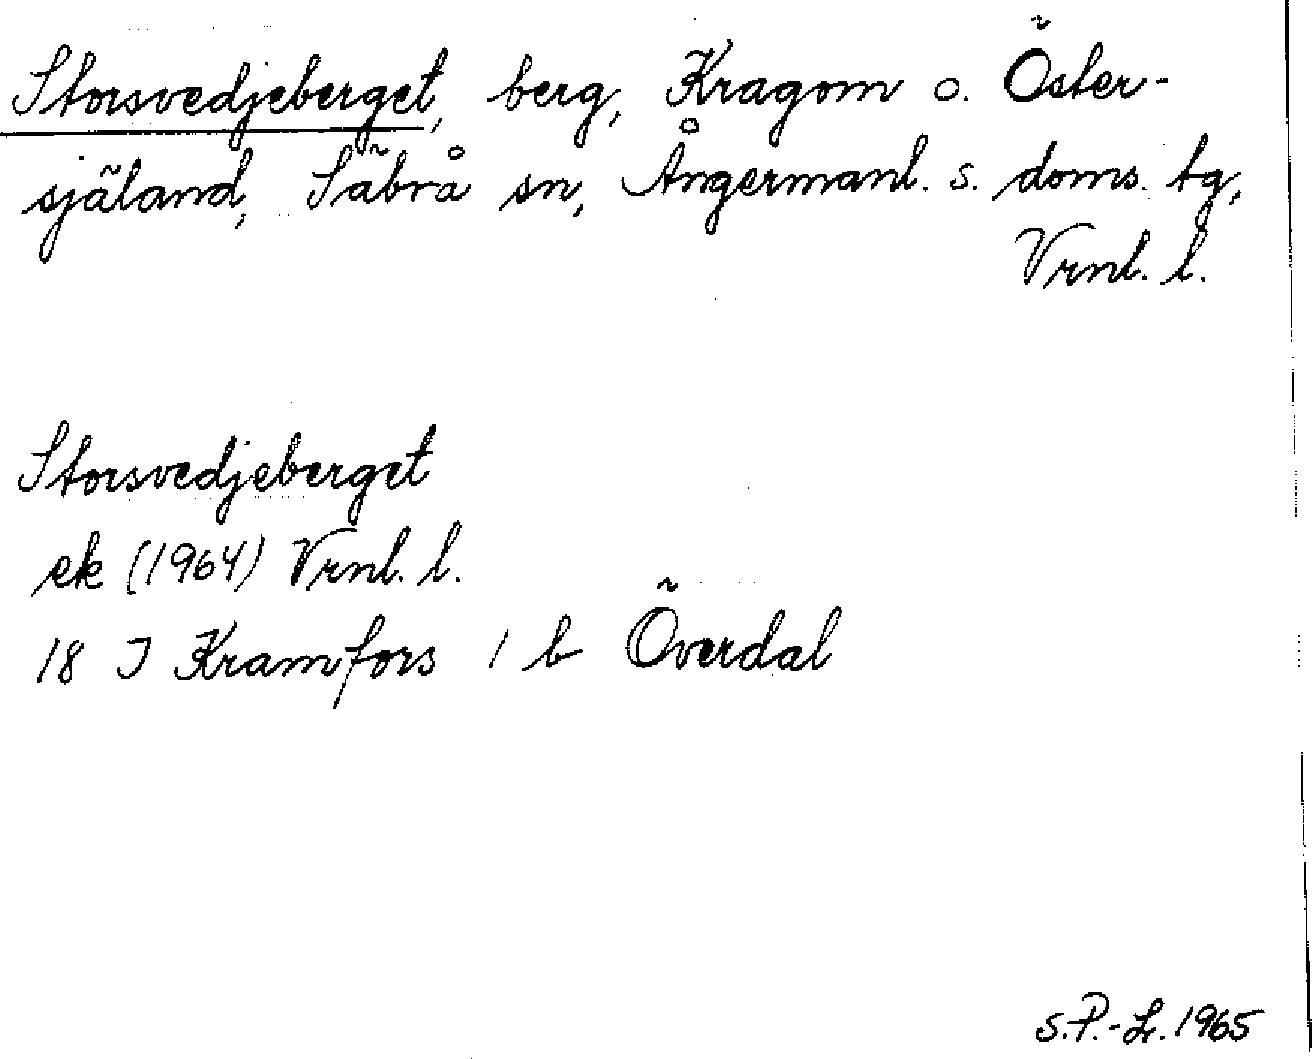 Storsvedjeberget, berg, Kragom o. Öster-
själand, Säbrå sn, Ångermanl. s. doms. tg,
Vrnl. l.
Storsvedjeberget
ek (1964) Vrnl. l.
18 I Kramfors 1 b Överdal
S.P.-Lr. 1965